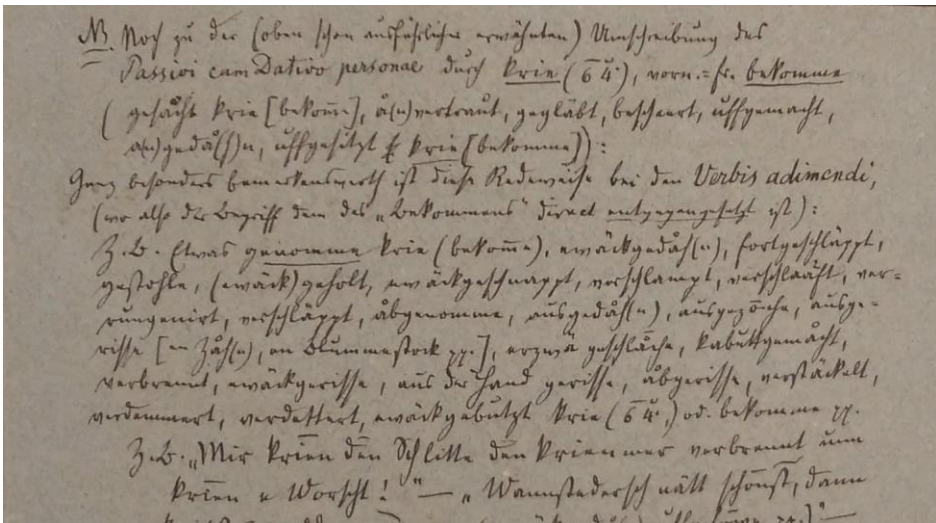 NB. Noch zu der (oben schon ausführlicher erwähnten) Umschreibung des
Passivi cum Dativo personae durch krie (64.), vorn.=fr. bekomme
(gesacht krie [bekom̅e], a(n)vertraut, gegläbt, bescheert, uffgemacht,
a(n)gedå(h)n, uffgesitzt krie [bekomme]):
Ganz besonders bemerkenswerth ist diese Redeweise bei den Verbis adimendi,
(wo also der Begriff dem des „Bekommens" direct entgegengesetzt ist):
Z.B. Etwas genomme krie (bekom̅e), ewäckgedåh(n), fortgeschläppt,
gestohle, (ewäck)geholt, ewäckgeschnappt, verschlampt, verschlaaft, ver=
rungenirt, verschlappt, åbgenomme, ausgedåh(n), ausgezoche, ausge=
risse [en Zåh(n), en Blummestock pp.], geschlåche, kabuttgemåcht,
verbrennt, ewäckgerisse, aus der Hand gerisse, åbgerisse, verstäckelt,
verdemmert, verdettert, ewäckgebutzt krie (64.) od. bekomme pp.
Z.B. „Mir krien den Schlitte den krien mer verbrennt unn
krien e Worscht!" — „Wannstedersch nätt schonst, dann